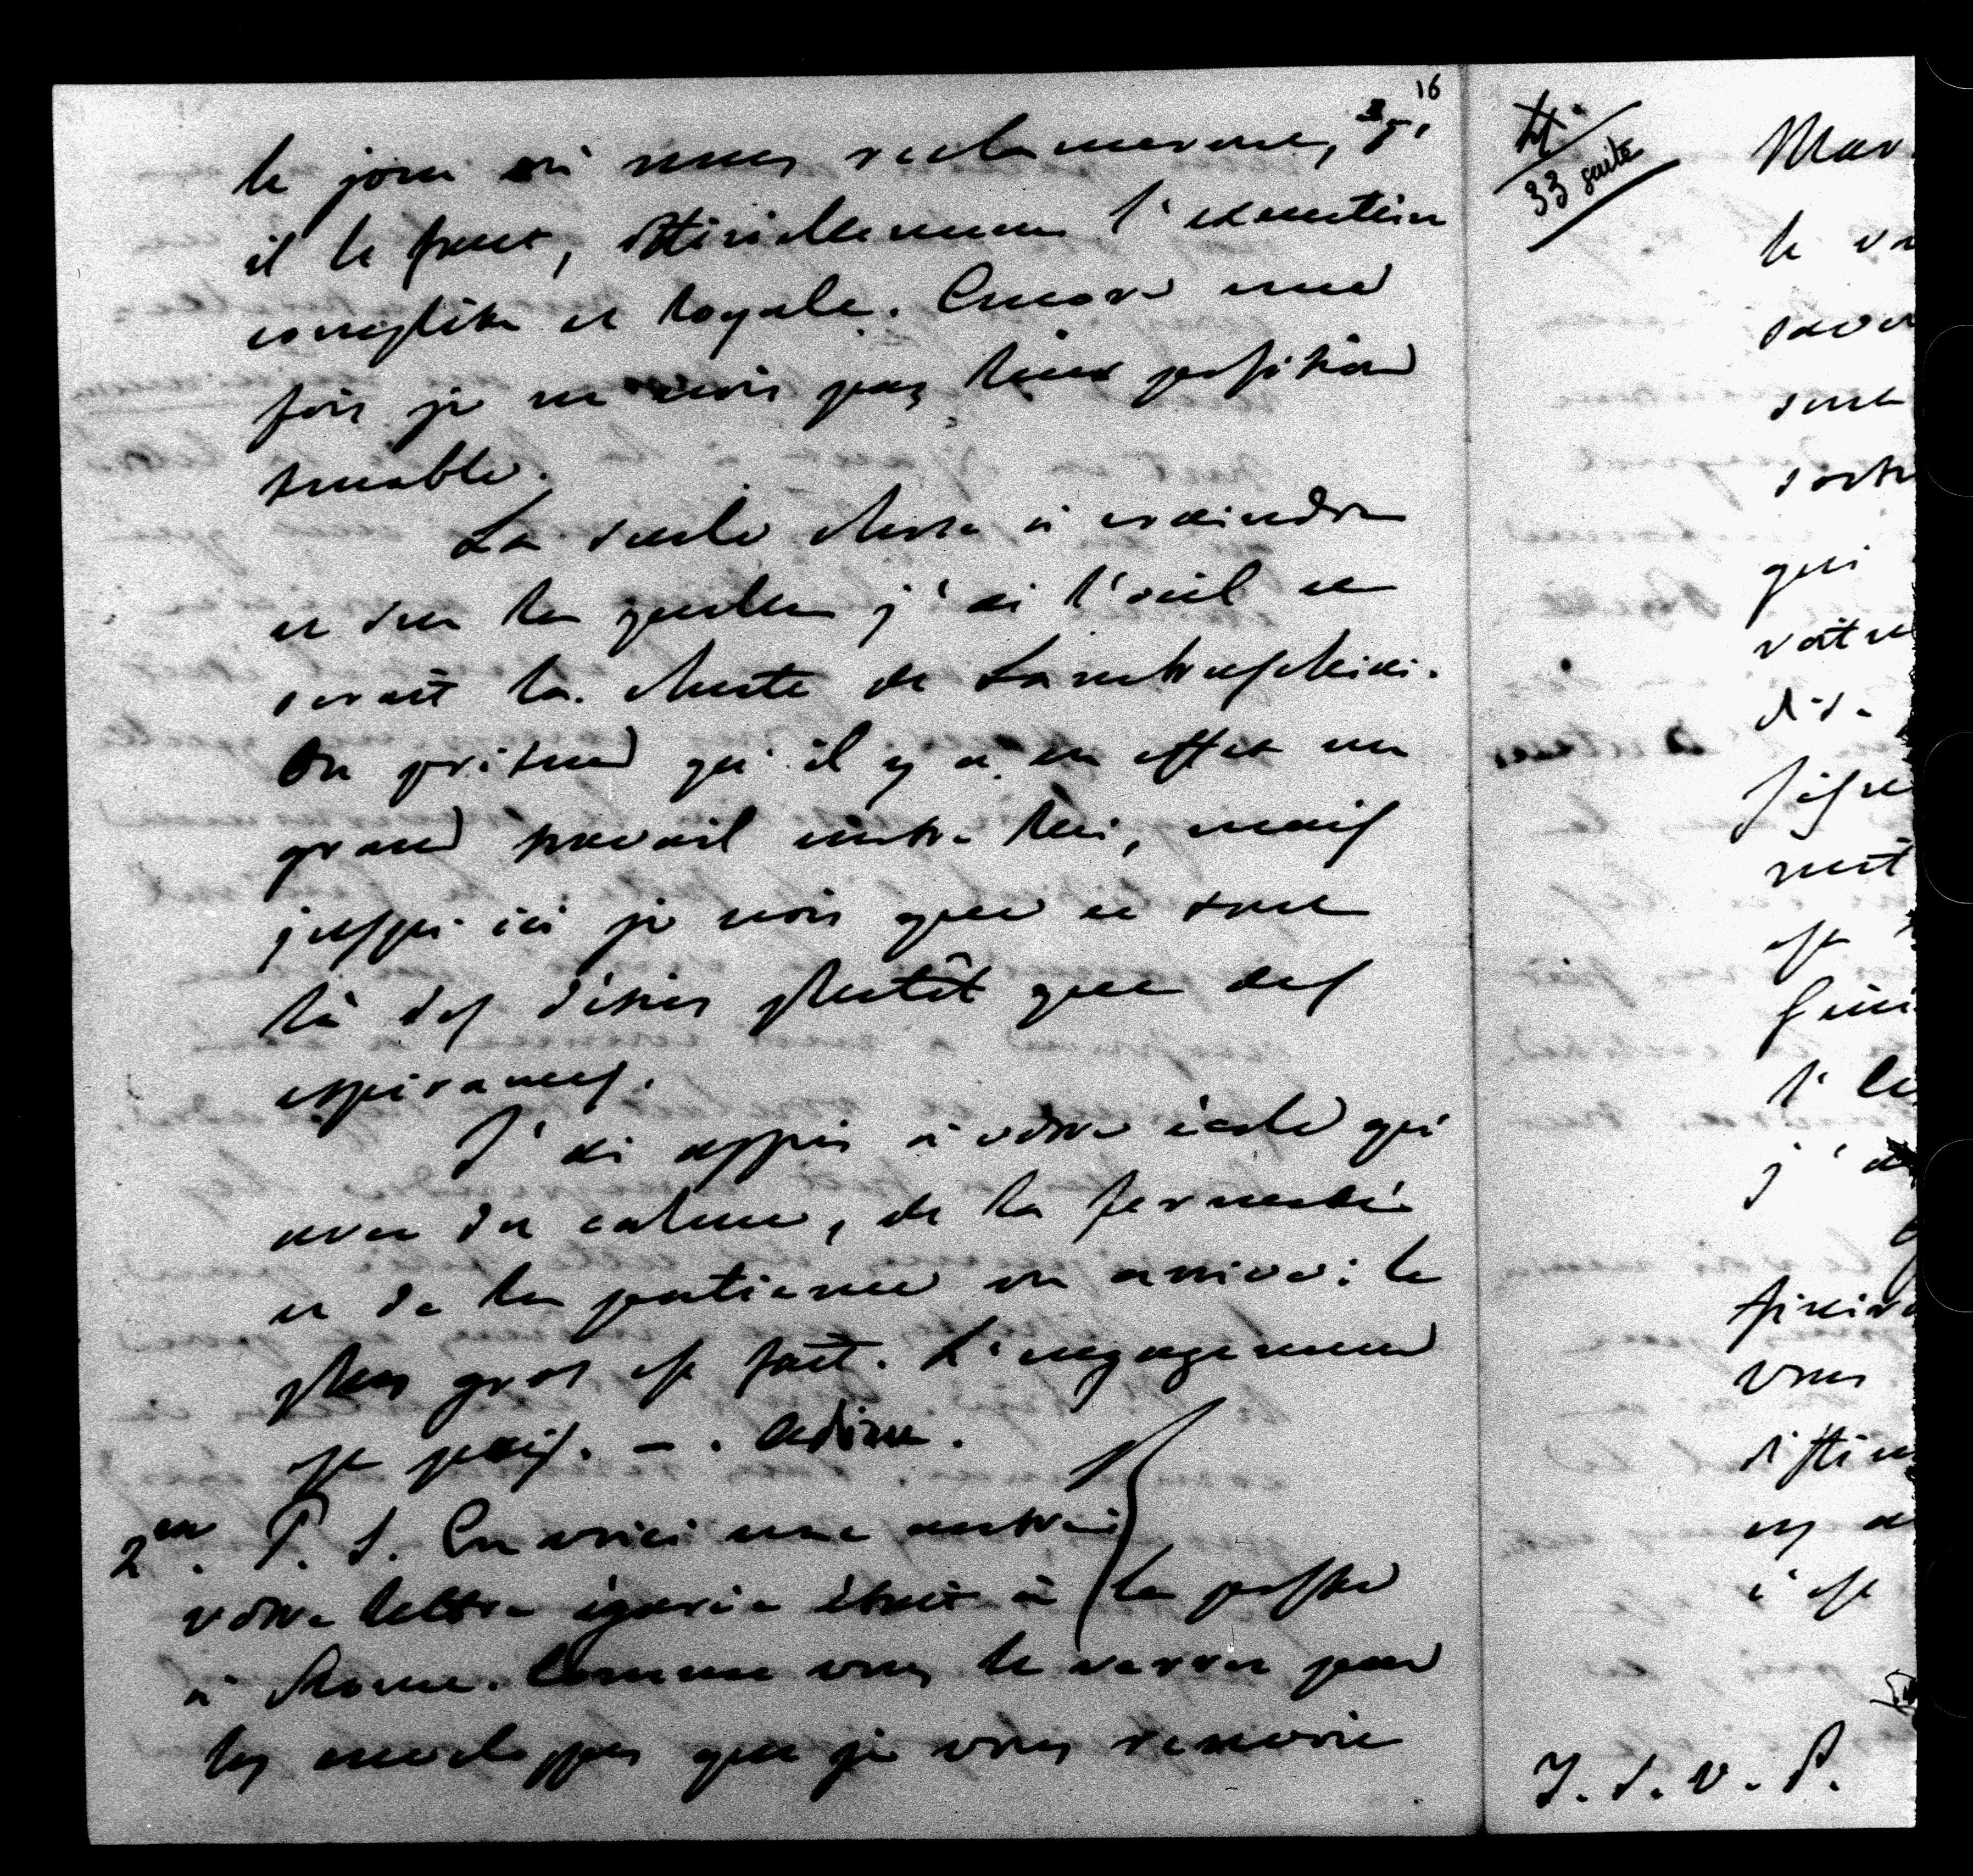 16
le jour où nous réclamerons, s'
il le faut, officiellement l'exécution
complète et loyale. Encore une
fois je ne crois pas leur position
tenable.
La seule chose à craindre
et sur laquelle j'ai l'œil ce
serait la chute de Lambruschini.
On prétend qu'il y a en effet un
grand travail contre lui, mais
jusqu'ici je crois que ce sont
là des désirs plutôt que des
espérances.
J'ai appris à votre école qu'
avec du calme, de la fermeté
et de la patience on arrive : le
plus gros est fait. L'engagement
est pris. — . Adieu.
2em. P. S. En voici une autre :
votre lettre égarée était à la poste
à Rome. Comme vous le verrez par
les enveloppes que je vous renvoie
33 suite
Mar
le
qui
votre
dis-
est
l'
j'
vous
c'est
T. S. V. P.